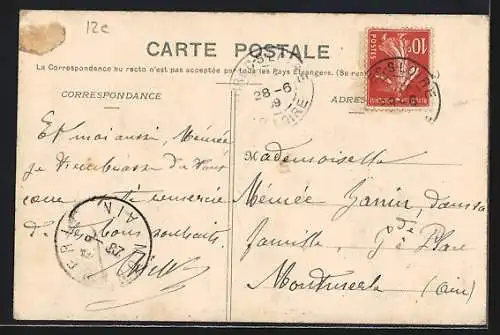 12c
CARTE POSTALE
La Correspondance au recto n'est pas acceptée par tous les Pays Étrangers. (Se ren
CORRESPONDANCE
ADRES
POSTES
10c
28-6
09
LOIRE
Et moi aussi, Mémée
je t'embrasse de tout
cœur et te remercie
de tes bons souhaits.
AIN
28
Mademoiselle
Mémée Janin, dans sa
famille, Gde Place
Montmerle (Ain)